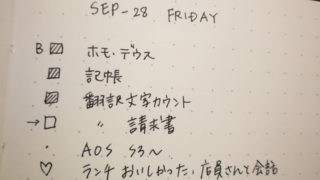 SEP-28 FRIDAY
B ホモ・デウス
記帳
翻訳文字カウント
→ 〃 請求書
・ AOS S3〜
♡ ランチ おいしかった、店員さんと会話